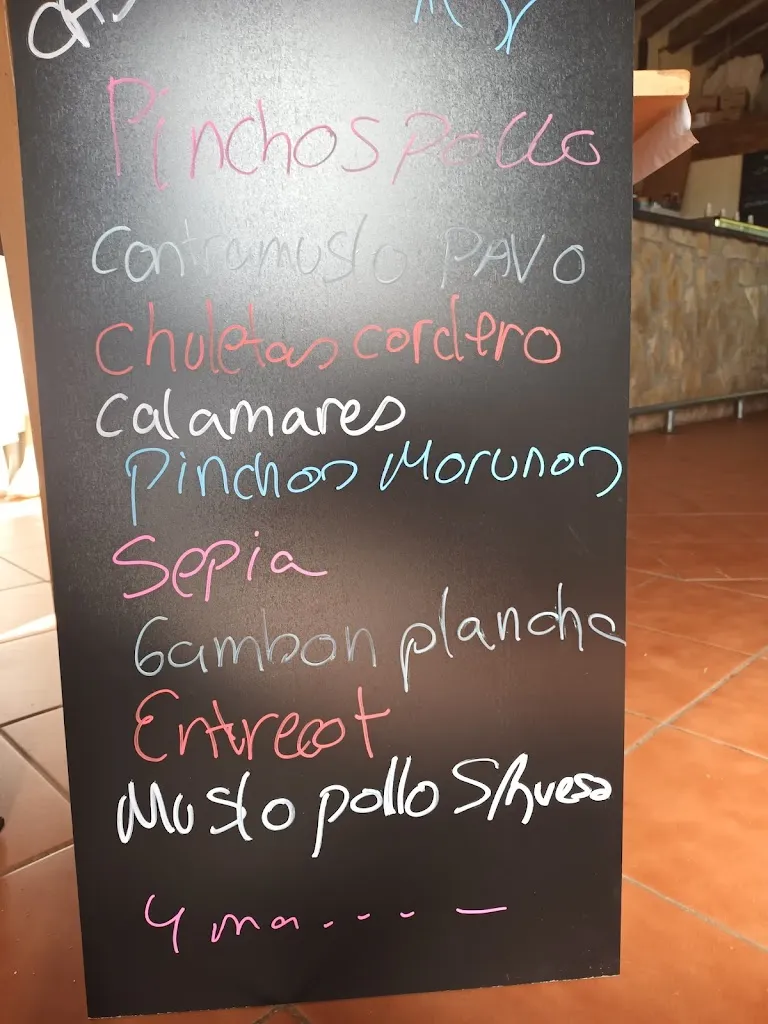 Pinchos pollo
Contramuslo PAVO
Chuletas cordero
Calamares
Pinchos Morunos
Sepia
Gambon plancha
Entrecot
Muslo pollo S/hueso
Y ma.... _